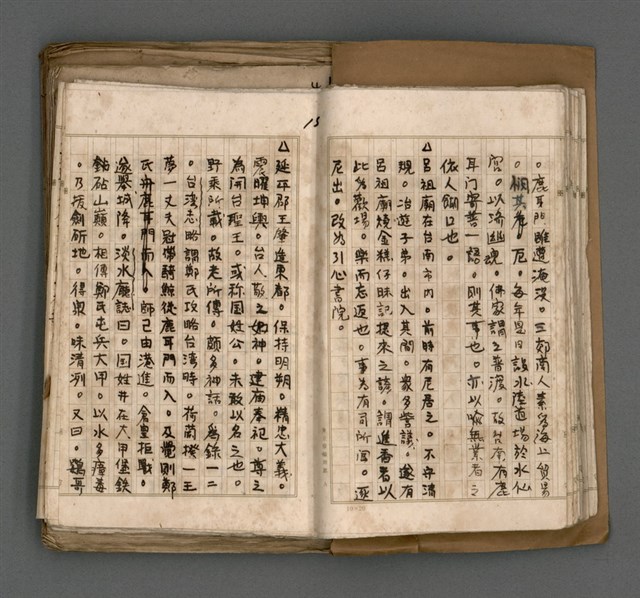 15
。鹿耳門雖遭海漠。三郊商人素為海上貿易
。憫其卷厄。每年是日設水陸道場於水仙
宮。以濟幽魂。佛家謂之普渡。故台南有鹿
耳門寄普一語。則其事也。亦以喻無業者之
依人餬口也。
△呂祖廟在台南市內。前時有尼居之。不守清
規。冶遊子弟。出入其間。眾多營議。遂有
呂祖廟燒金糕仔昧記提來之諺。謂進香者以
此為歡場。樂而忘返也。事為有司所聞。逐
尼出。改為引心書院。
△延平郡王肇造東都。保持明朔。精忠大義。
震曜坤輿。台人敬之如神。建廟奉祀。尊之
為開台聖王。或称国姓公。未敢以名之也。
野乘所載。故老所傳。頗多神話。爰錄一二
。台湾志略謂鄭氏攻略台湾時。荷蘭揆一王
夢一丈夫冠帶騎鯨從鹿耳門而入。及覺則鄭
氏舟鹿耳門而入。師已由港進。倉皇拒戰。
遂舉城降。淡水廳誌曰。国姓井在大甲堡鉄
砧山巔。相傳鄭氏屯兵大甲。以水多瘴毒
。乃拔劍斫地。得泉。味清冽。又曰。鶯哥